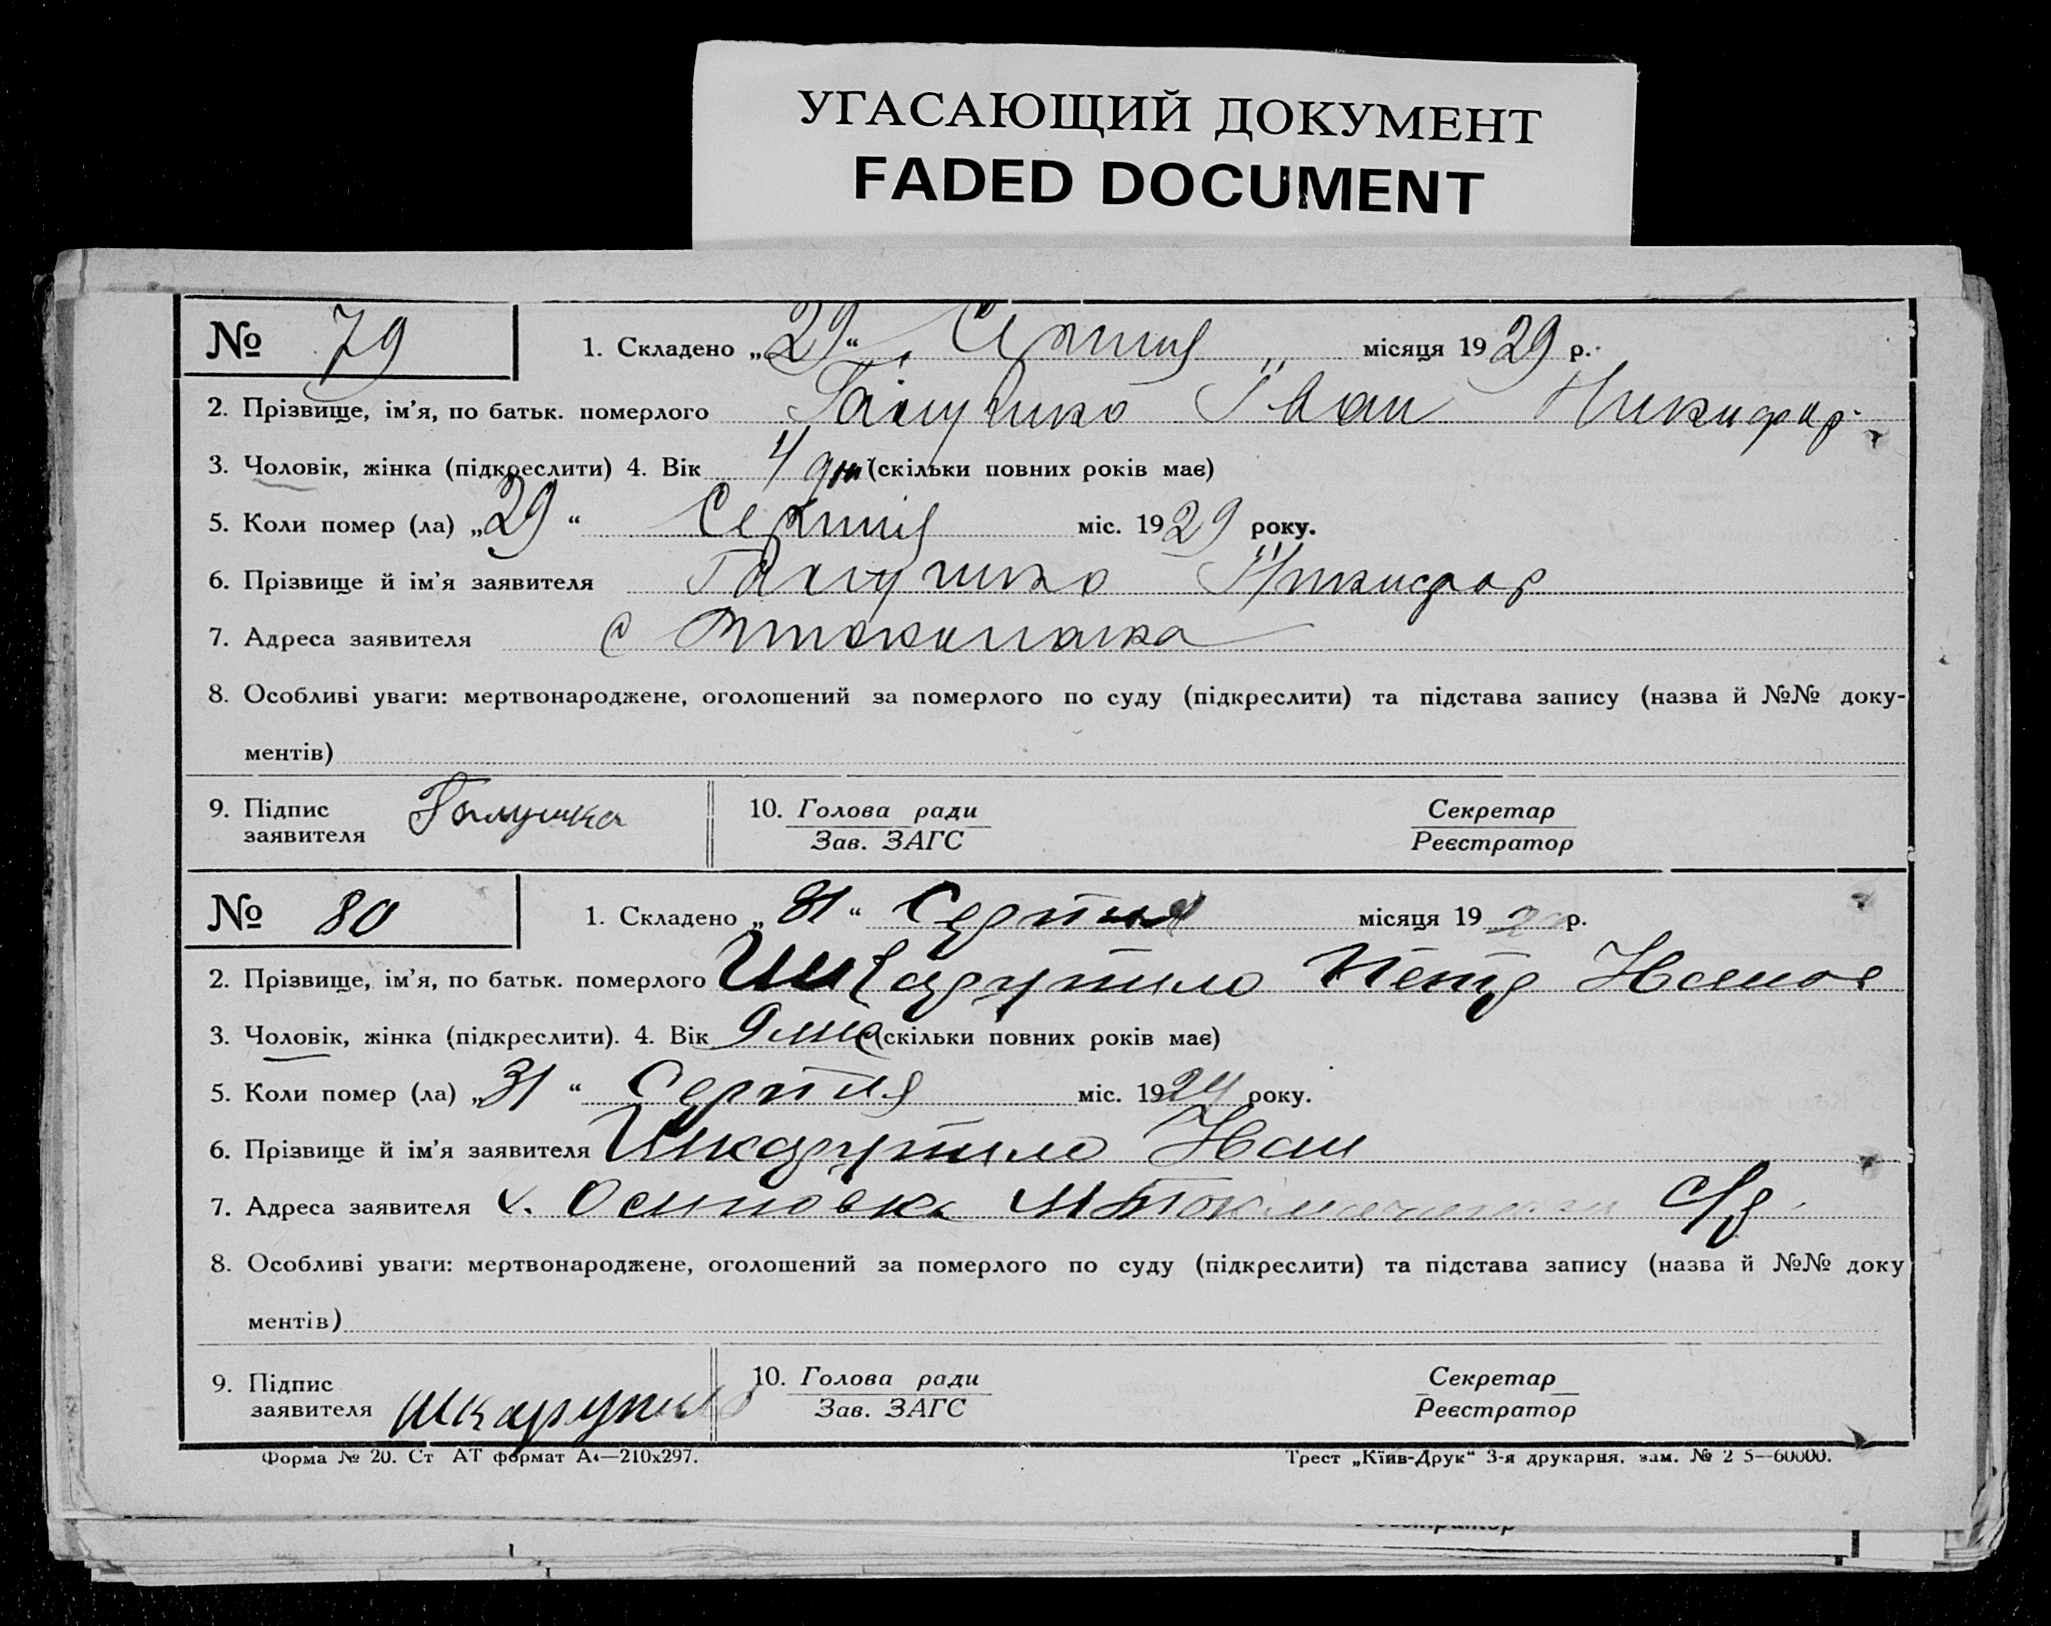 УГАСАЮЩИЙ ДОКУМЕНТ
FADED DOCUMENT
№ 79 1. Складено „29“ Серпня місяця 1929 р.
2. Прізвище, ім’я, по батьк. померлого Галушко Іван Никифор.
3. Чоловік, жінка (підкреслити) 4. Вік 4 дн (скільки повних років має)
5. Коли помер (ла) „29“ Серпня міс. 1929 року.
6. Прізвище й ім’я заявителя Галушко Никифор
7. Адреса заявителя с
8. Особливі уваги: мертвонароджене, оголошений за померлого по суду (підкреслити) та підстава запису (назва й №№ доку-
ментів)
9. Підпис заявителя Галушка 10. Голова ради Зав. ЗАГС Секретар Реєстратор
№ 80 1. Складено „31“ Серпня місяця 192 р.
2. Прізвище, ім’я, по батьк. померлого Шкарупило Петр Иванов
3. Чоловік, жінка (підкреслити). 4. Вік 9 міс (скільки повних років має)
5. Коли помер (ла) „31“ Серпня міс. 19 року.
6. Прізвище й ім’я заявителя Шкарупило Иван
7. Адреса заявителя х. С/р.
8. Особливі уваги: мертвонароджене, оголошений за померлого по суду (підкреслити) та підстава запису (назва й №№ доку
ментів)
9. Підпис заявителя Шкарупило 10. Голова ради Зав. ЗАГС Секретар Реєстратор
Форма № 20. Ст АТ формат А4—210х297. Трест „Київ-Друк“ 3-я друкарня, зам. № 2 5—60000.